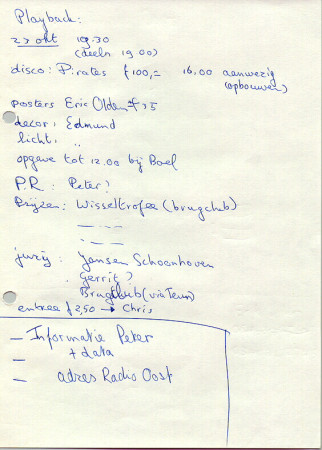 Playback:
27 okt 19.30
(deeln 19.00)
disco: Pirates f 100,= 16.00 aanwezig
(opbouwen)
posters Eric Olden f 75
decor: Edmund
licht: ,,
opgave tot 12.00 bij Boel
P.R: Peter?
Prijzen: Wisseltrofee (brugclub)
jury: Jansen Schoenhoven
Gerrit?
Brugclub (via Teun)
entree f 2,50 → Chris
— Informatie Peter
— + data
— adres Radio Oost